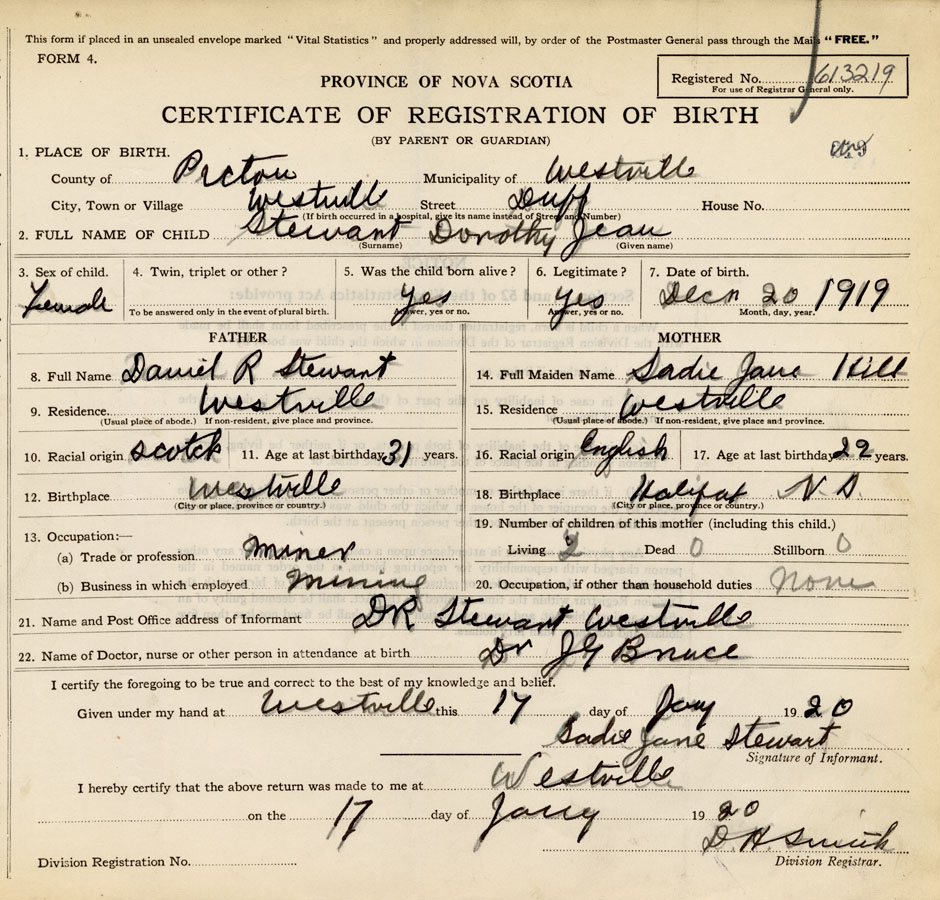 This form if placed in an unsealed envelope marked "Vital Statistics" and properly addressed will, by order of the Postmaster General pass through the Mails "FREE."
FORM 4.
PROVINCE OF NOVA SCOTIA
Registered No. 613219
For use of Registrar General only.
CERTIFICATE OF REGISTRATION OF BIRTH
(BY PARENT OR GUARDIAN)
1. PLACE OF BIRTH.
County of Pictou Municipality of Westville
City, Town or Village Westville Street Duff House No.
(If birth occurred in a hospital, give its name instead of Street and Number)
2. FULL NAME OF CHILD Stewart Dorothy Jean
(Surname) (Given name)
3. Sex of child. 4. Twin, triplet or other? 5. Was the child born alive? 6. Legitimate? 7. Date of birth.
Female Yes Yes Decr 20 1919
To be answered only in the event of plural birth. Answer, yes or no. Answer, yes or no. Month, day, year.
FATHER MOTHER
8. Full Name Daniel R Stewart 14. Full Maiden Name Sadie Jane Hill
9. Residence Westville 15. Residence Westville
(Usual place of abode.) If non-resident, give place and province. (Usual place of abode.) If non-resident, give place and province.
10. Racial origin Scotch 11. Age at last birthday 31 years. 16. Racial origin English 17. Age at last birthday 22 years.
12. Birthplace Westville 18. Birthplace Halifax N S.
(City or place, province or country.) (City or place, province or country.)
19. Number of children of this mother (including this child.)
13. Occupation:—
(a) Trade or profession Miner Living 2 Dead 0 Stillborn 0
(b) Business in which employed Mining 20. Occupation, if other than household duties None
21. Name and Post Office address of Informant DR Stewart Westville
22. Name of Doctor, nurse or other person in attendance at birth Dr J G Bruce
I certify the foregoing to be true and correct to the best of my knowledge and belief.
Given under my hand at Westville this 17 day of Jany 1920
Sadie Jane Stewart
Signature of Informant.
I hereby certify that the above return was made to me at Westville
on the 17 day of Jany 1920
D. H. Smith
Division Registration No. Division Registrar.